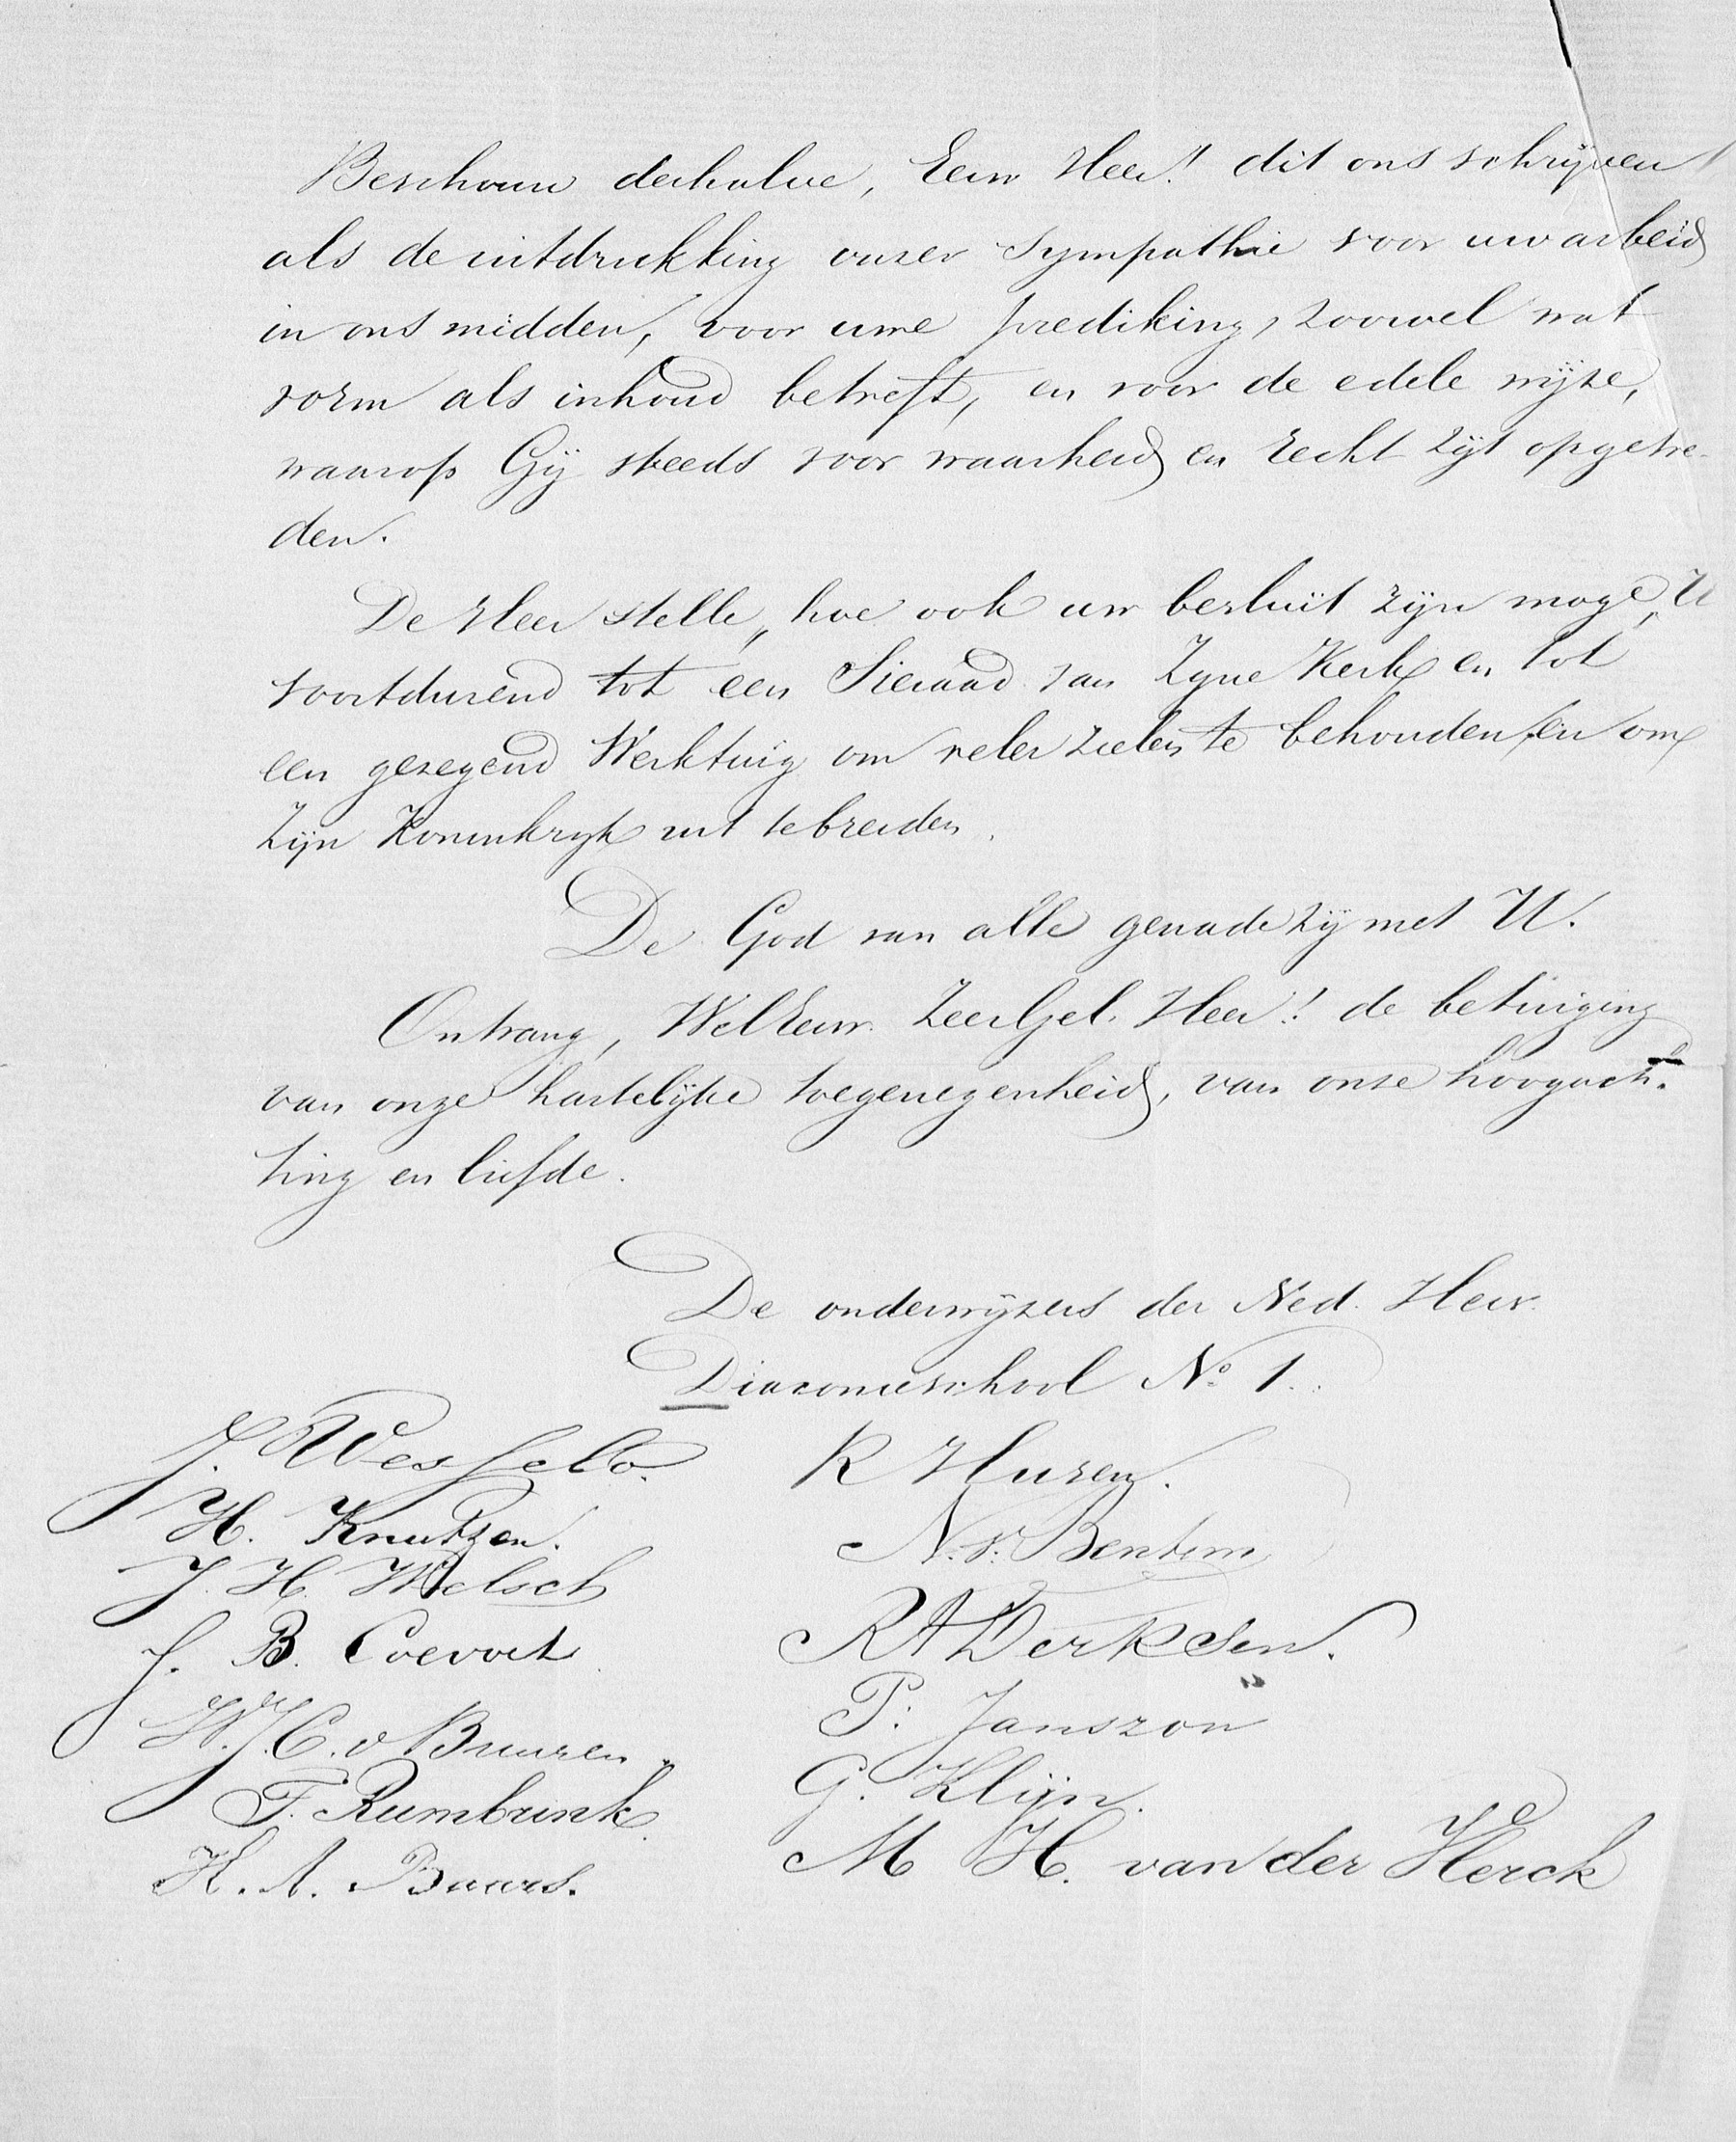 Beschouw derhalve, Eerw Heer! dit ons schrijven
als de uitdrukking onzer sympathie voor uw arbeid
in ons midden, voor uwe prediking, zoowel wat
vorm als inhoud betreft, en voor de edele wijze,
waarop Gij steeds voor waarheid en recht zijt opgetre-
den.
De Heer stelle, hoe ook uw besluit zijn moge, U
voortdurend tot een Sieraad van Zyne Kerk en tot
een gezegend Werktuig om veler zielen te behouden, en om
Zijn Koninkryk uit te breiden.
De God van alle genade zij met U.
Ontvang, WelEerw. ZeerGel. Heer! de betuiging
van onze hartelijke toegenegenheid, van onze hoogach-
ting en liefde.
De onderwijzers der Ned. Herv.
Diaconieschool No. 1.
J. Wesselo.
R Huzen.
H. Knutzen.
N. v. Bentem
J. H. Welsch
R A Derksen.
J. B. Coevoet
P. Janszon
W. J. C. v Buuren
G. Klijn.
F. Rumbrink
M H. van der Herck
H. A. Baars.